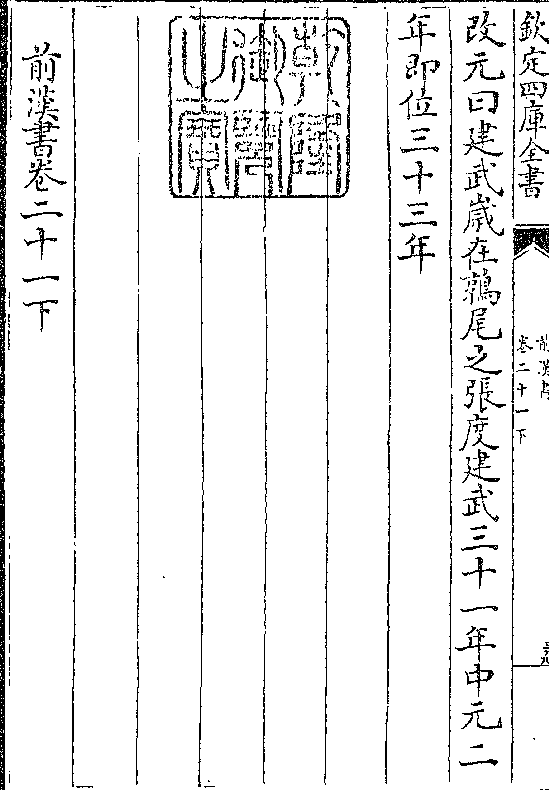 欽定四庫全書
前漢書
卷二十一下
改元曰建武歲在鶉尾之張度建武三十一年中元二
年即位三十三年
乾隆
御覽
之寶
前漢書卷二十一下